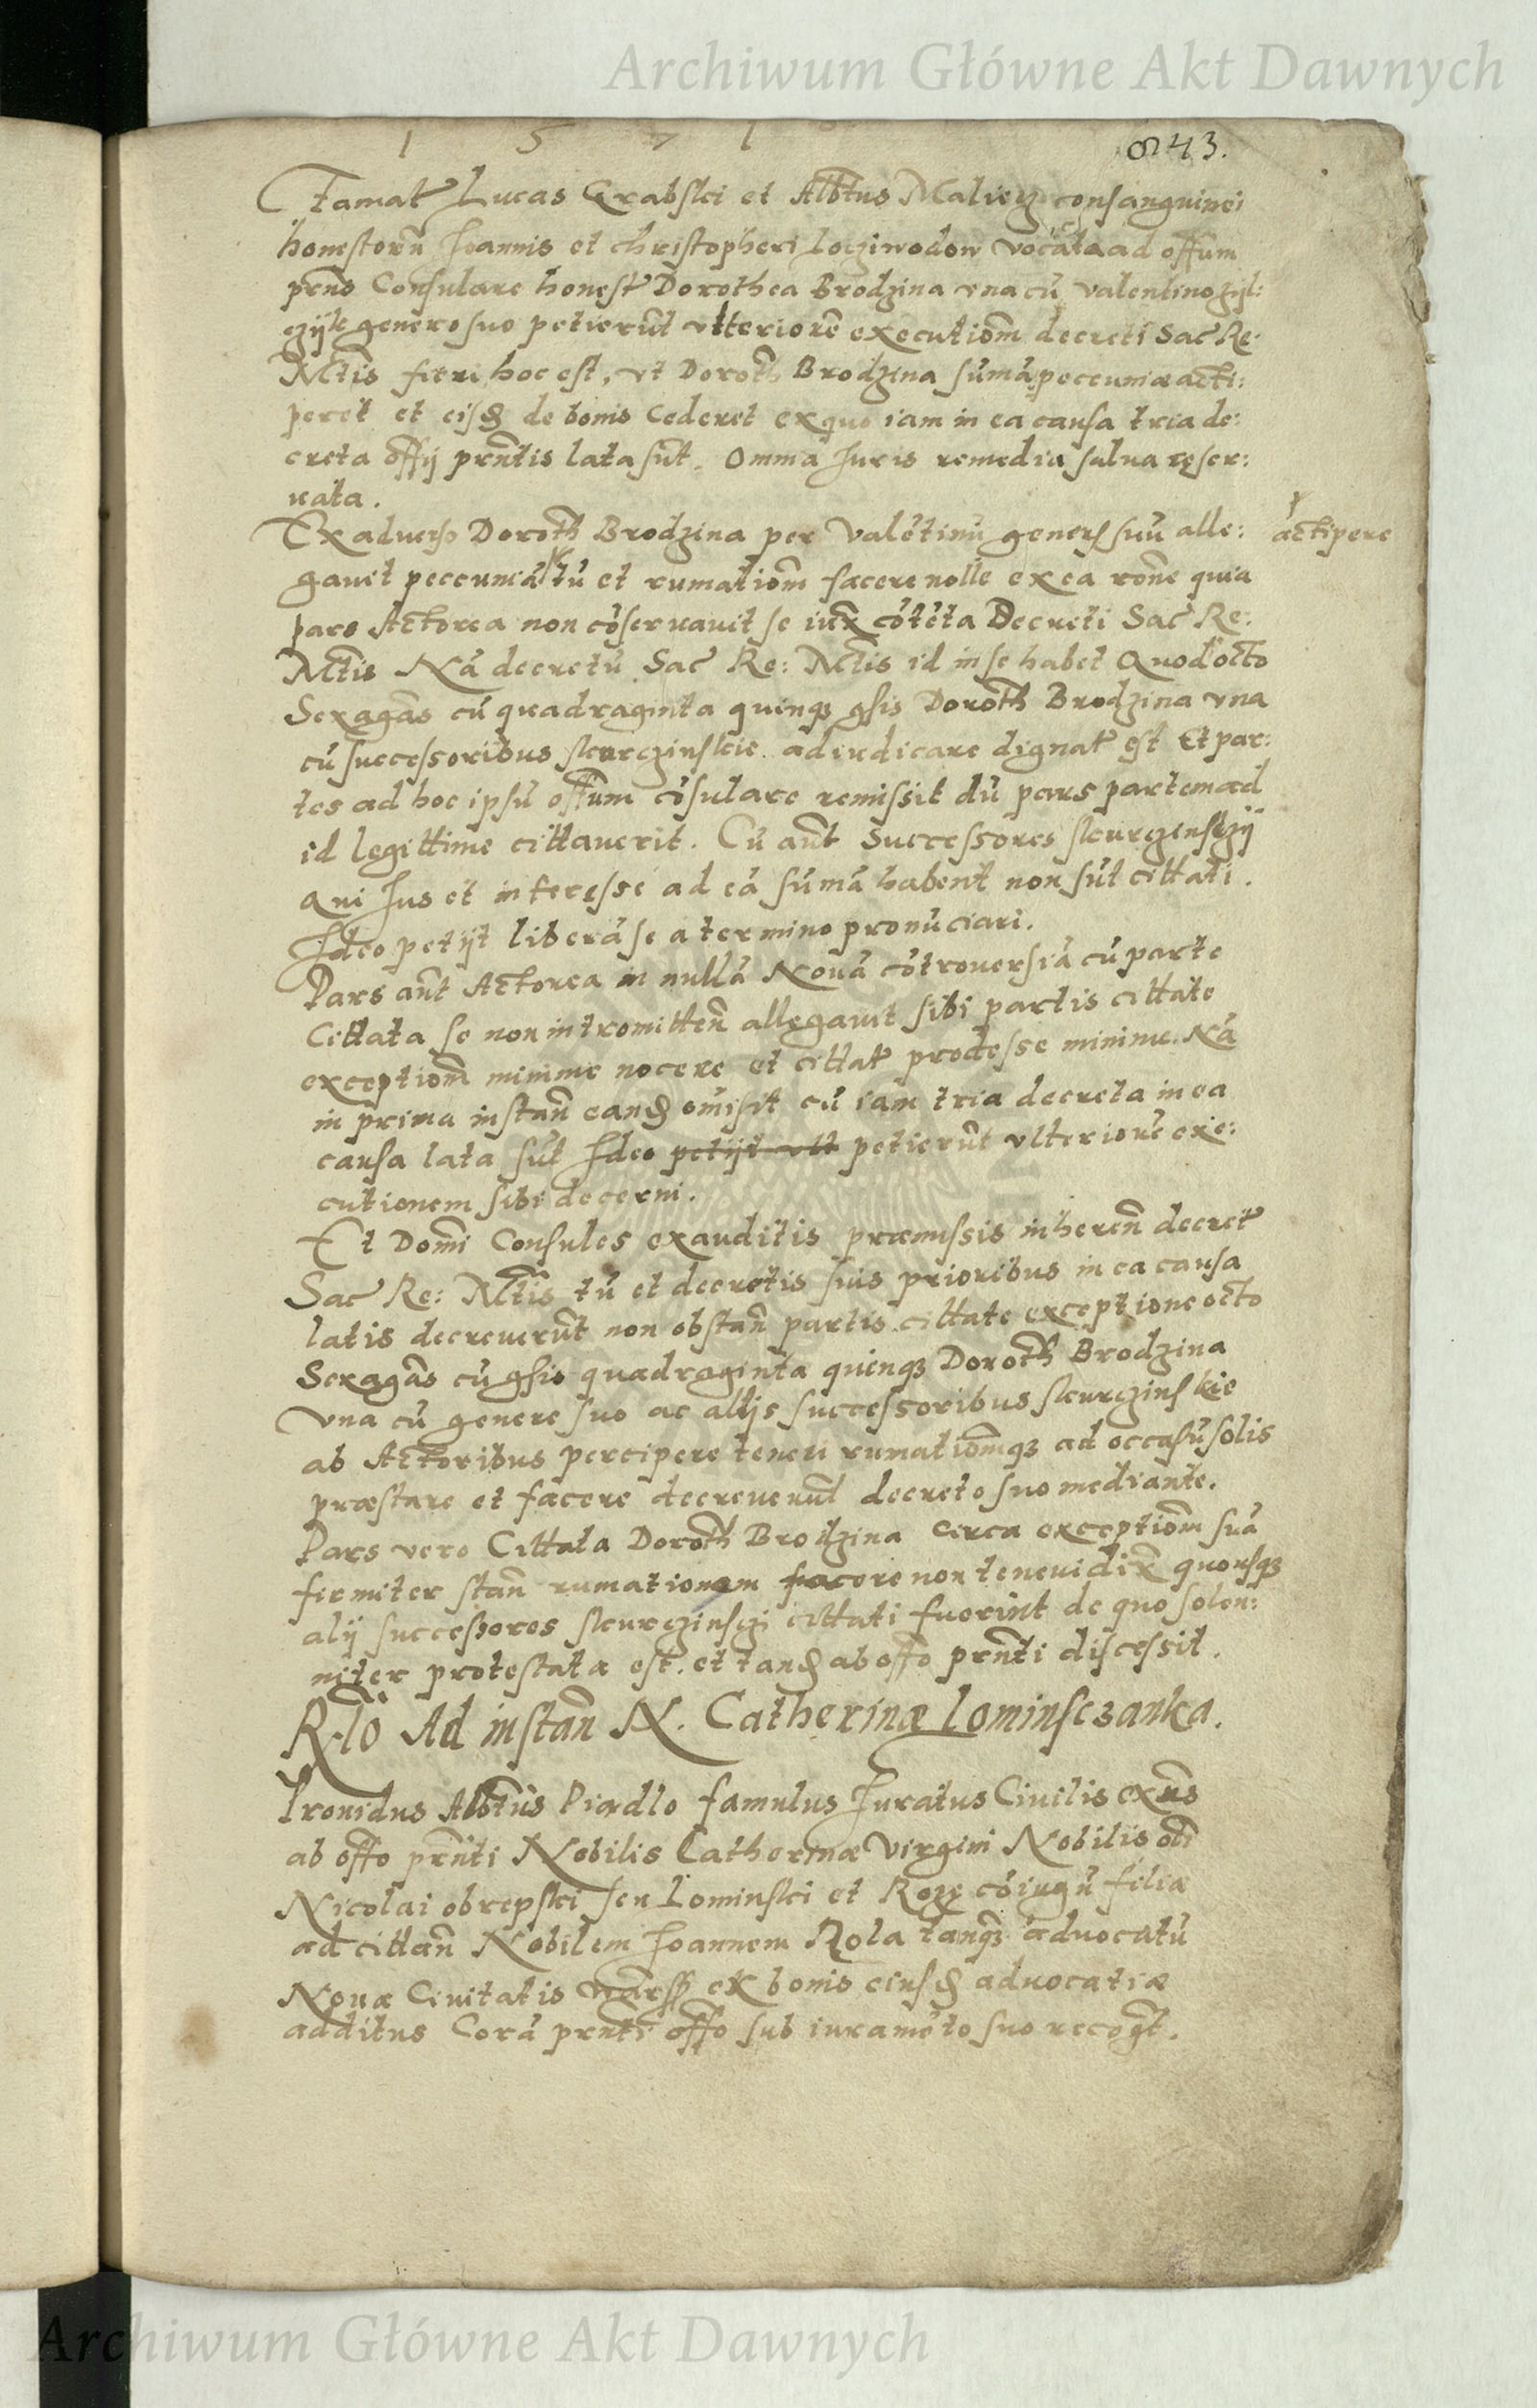 Archiwum Główne Akt Dawnych
1 5 7 1
843.
Famať Lucas Grabski et Albtus Maliex consanguinei
honestorũ Joannis et christopheri locziwodow vocata ad offum
prns Consulare honesť Dorothea Brodzina vna cũ Valentino
genero suo petierũt vlteriorẽ executiom̃ decreti Sac Re:
Mtis fieri hoc est, vt Doroth Brodzina sum̃ã peccuniæ acti:
peret et eisd de bonis Cederet ex quo iam in ea causa tria de:
creta offij prntis lata sũt. Omnia Juris remedia salua reser:
uata.
Ex adverso Doroth Brodzina per Valẽtinũ generũ suũ alle:
actipere
gavit peccuniã tũ et rumatiom̃ facere nolle ex ea rone quia
pars Actorea non cõservauit se iux cõtẽta Decreti Sac Re:
Mtis Nã decretũ Sac Re: Mtis id in se habet Quod octo
Sexagãs cũ quadraginta quinqz gsis Doroth Brodzina vna
cũ successoribus skurczinskie adiudicare dignať est Et par:
tes ad hoc ipsũ offum cõsulare remissit dũ pars partem ad
id legittime cittaverit. Cũ aũt Successores skurczenskij
qui Jus et interesse ad eã sum̃ã habent non sũt cittati.
Ideo petijt liberã se a termino pronũciari.
Pars aũt Actorea in nullã Novã cõtroversiã cũ parte
Cittata se non intromitteñ allegavit sibi partis cittate
exceptiom̃ minime nocere et cittať prodesse minime. Nã
in prima instañ eand omisit cũ iam tria decreta in ea
causa lata sũt Ideo petijt vlt petierũt vlteriorẽ exe:
cutionem sibi decerni.
Et Domi Consules exauditis præmissis inhereñ decreť
Sac Re: Mtis tũ et decretis suis prioribus in ea causa
latis decreverũt non obstañ partis cittate exceptione octo
Sexagãs cũ gsis quadraginta quinqz Doroth Brodzina
vna cũ genere suo ac alijs successoribus skurczinskie
ab Actoribus percipere teneri rumatiomqz ad occasũ solis
præstare et facere decreverũt decreto suo mediante.
Pars vero Cittata Doroth Brodzina circa exceptiom̃ suã
firmiter stañ rumationem facere non teneri dix quousqz
alij successores skurczinsczi cittati fuerint de quo solen:
niter protestata est. et tand ab offo prnti discessit.
Rlõ Ad instañ N. Catherinæ Lominsczanka.
Providus Albtus Piadlo famulus Juratus Civilis exñs
ab offo prnti Nobilis Catherinæ Virgini Nobilis oli
Nicolai obrepski seu Lominski et Rozę cõiugũ filiæ
ad cittañ Nobilem Joannem Rola tanqz advocatũ
Novæ Civitatis warss ex bonis eiusd advocatiæ
additus Corã prnti offo sub iuramẽto suo recogt.
Archiwum Główne Akt Dawnych